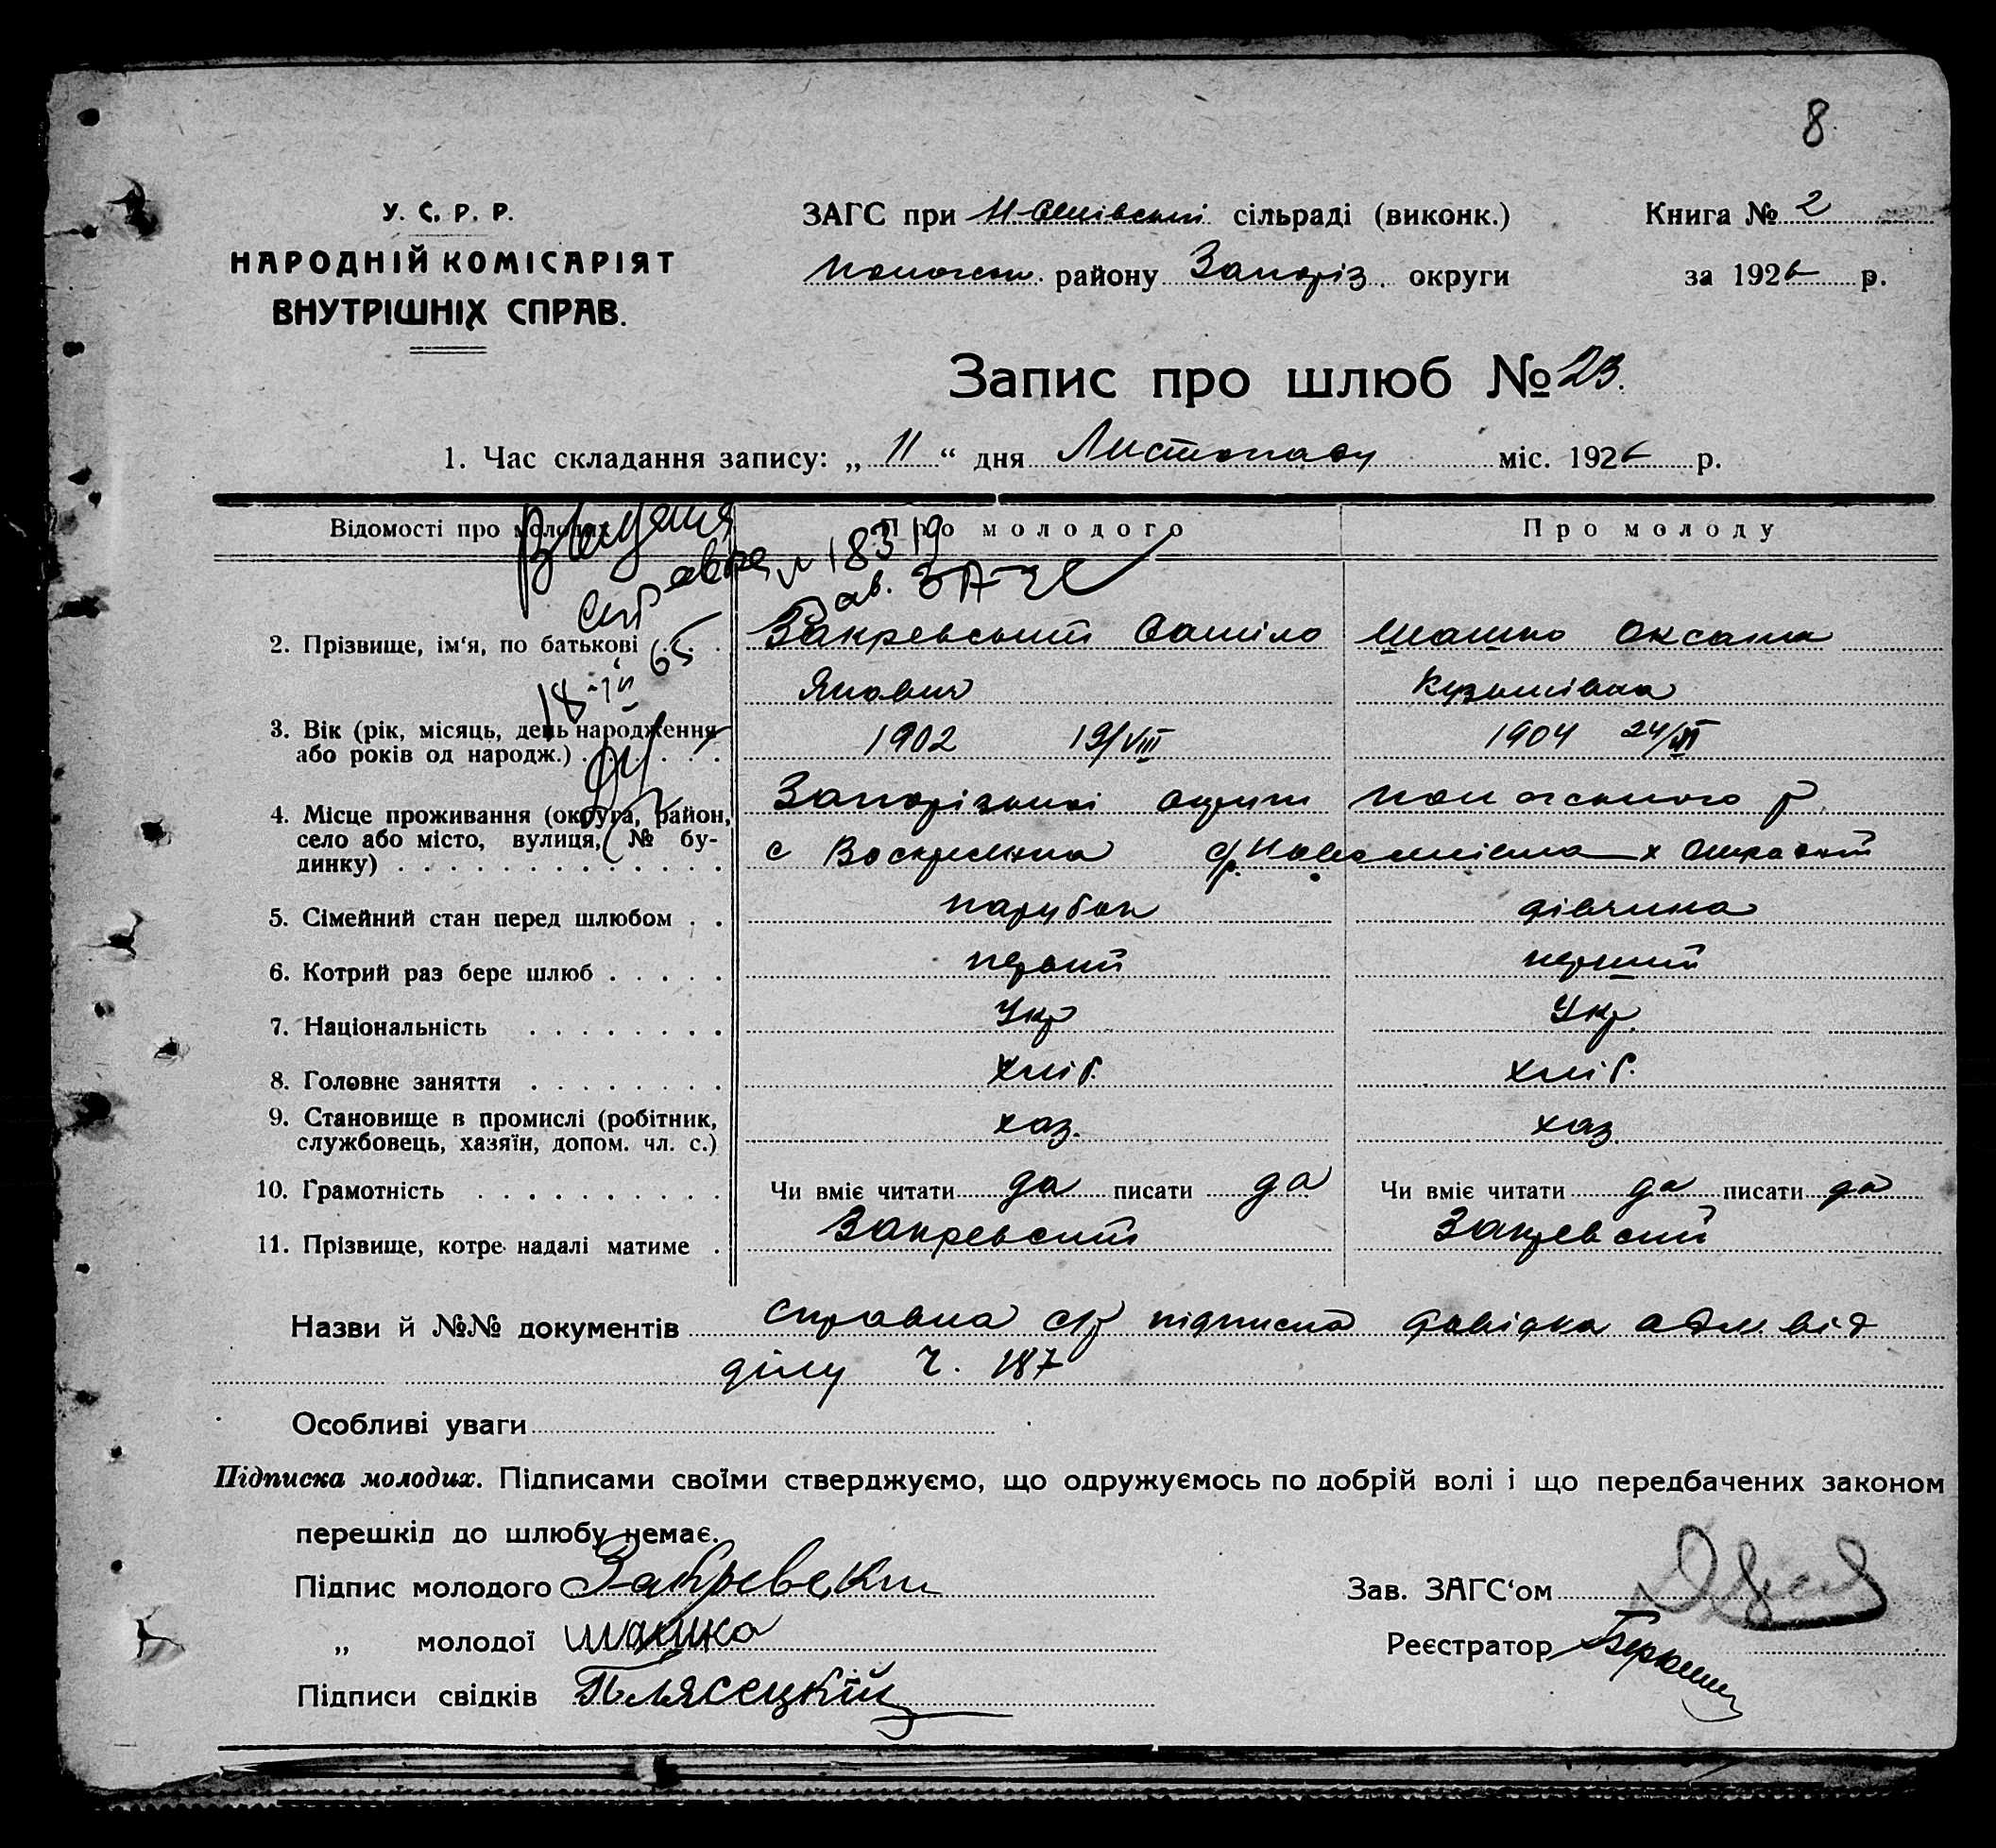 8.
У. С. Р. Р.
НАРОДНІЙ КОМІСАРІЯТ
ВНУТРІШНІХ СПРАВ.
ЗАГС при сільраді (виконк.)
району Запоріз. округи
Книга № 2
за 1926 р.
Запис про шлюб № 23.
1. Час складання запису: „ 11 “ дня Листопаду міс. 1926 р.
Відомості про молодих
Про молодого
Про молоду
Выдана
справка № 18319
Зав. ЗАГС
65
2. Прізвище, ім‘я, по батькові
Закревський Даніло
Шашко Оксана
Якович
Кузьмівна
3. Вік (рік, місяць, день народження
або років од народж.)
1902 19/VIII
1904 24/
4. Місце проживання (округа, район,
село або місто, вулиця, № бу-
динку)
Запорізької округи
р.
с Воскресенка
5. Сімейний стан перед шлюбом
парубок
дівчина
6. Котрий раз бере шлюб
первий
перший
7. Національність
Укр
Укр.
8. Головне заняття
хліб.
хліб.
9. Становище в промислі (робітник,
службовець, хазяїн, допом. чл. с.)
хаз.
хаз.
10. Грамотність
Чи вміє читати да писати да
Чи вміє читати да писати да
11. Прізвище, котре надалі матиме
Закревський
Закревский
Назви й №№ документів справка с/р підписка довідка адм. від
ділу ч. 187
Особливі уваги
Підписка молодих. Підписами своїми стверджуємо, що одружуємось по добрій волі і що передбачених законом
перешкід до шлюбу немає.
Підпис молодого Закревски
Зав. ЗАГС‘ом
„ молодої Шашко
Реєстратор
Підписи свідків Плясецкій